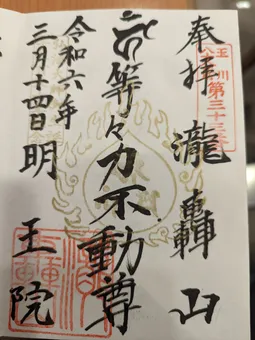 奉拝 瀧轟山
等々力不動尊
令和六年
三月十四日 明王院
第三十三番